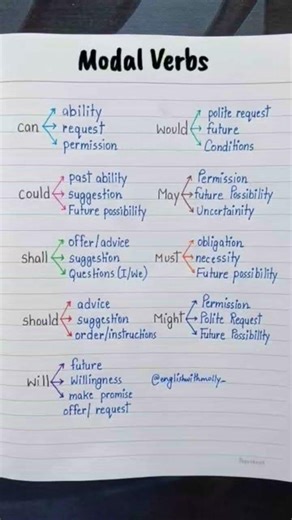 Modal Verbs
can
ability
request
permission
would
polite request
future
Conditions
could
past ability
suggestion
Future possibility
May
Permission
future Possibility
Uncertainity
shall
offer/advice
suggestion
Questions (I/We)
Must
obligation
necessity
Future possibility
should
advice
suggestion
order/instructions
Might
Permission
Polite Request
Future Possibility
will
future
Willingness
make promise
offer/ request
@englishwithmolly_